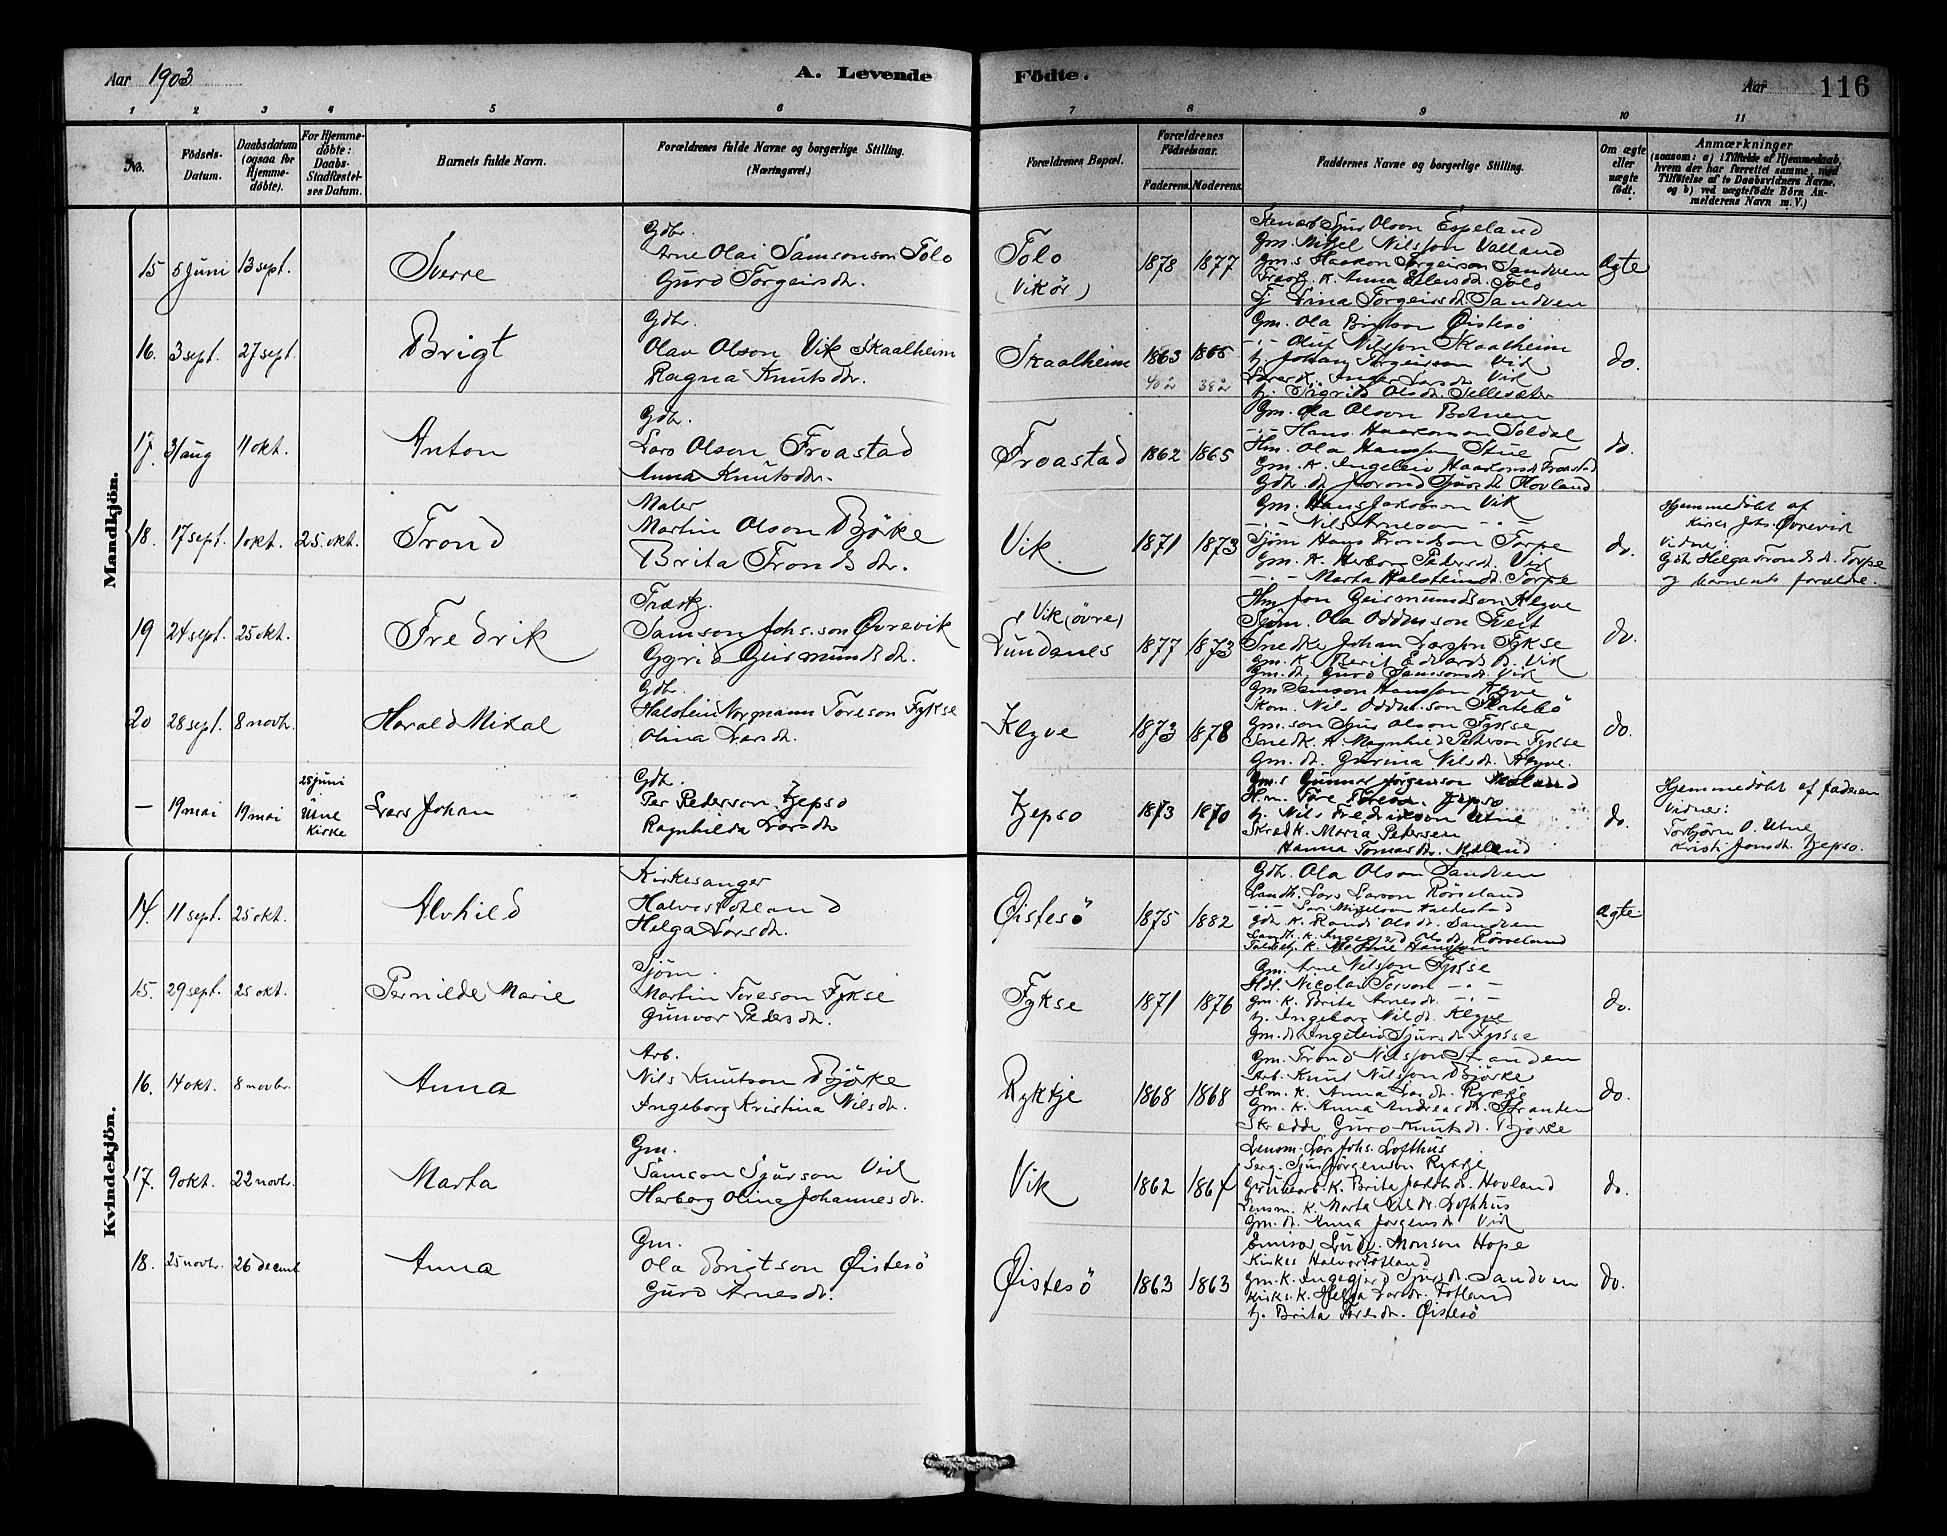 Aar 1903
A. Levende
Födte.
Aar
116
1 2 3 4 5 6 7 8 9 10 11
No.
Födsels-Datum.
Daabsdatum (ogsaa for Hjemme-döbte).
For Hjemme-döbte: Daabs-Stadfæstel-ses Datum.
Barnets fulde Navn.
Forældrenes fulde Navne og borgerlige Stilling.
(Næringsvei.)
Forældrenes Bopæl.
Forældrenes Födselsaar.
Faderens. Moderens.
Faddernes Navne og borgerlige Stilling.
Om ægte eller uægte födt.
Anmærkninger
(saasom: a) i Tilfælde af Hjemmedaab,
hvem der har forrettet samme, med
Tilföielse af to Daabsvidners Navne,
og b) ved uægtefödte Börn An-
melderens Navn m. V.)
Mandkjön.
15 5 juni 13 sept. Sverre
Gdbr.
Arne Olai Samsonson Tolo
Guro Torgeirsdr.
Tolo
(Vikör)
1878 1877
Sjur Olson Espeland
Gm. Mikkel Nilsson Valland
Gm.s Haakon Torgeirson Sandven
K. Anna Tolo
Torgeirsdr. Sandven
Ægte
16. 3 sept. 27 sept. Brigt
Gdbr.
Olav Olson Vik Skaalheim
Ragna Knutsdtr.
Skaalheim 1863 1865
Gm. Ola Brigtson Östesö
-"- Oluf Nilsson Skaalheim
Johan Torgeirson Vik
Inger Larsdr. Vik
Sigrid Olsdr. Tellesæter
do.
17. 31 aug 11 okt. Anton
Gdbr.
Lars Olson Froastad
Anna Knutsdtr.
Froastad 1862 1865
Gm. Ola Olson Botnen
-"- Hans Haakonson Soldal
Hm. Ola Hansson Stue
Gm. K. Ingeleiv Haakonsdr. Froastad
Gdbr. dr. Jorond Sjursdr. Hovland
do.
18. 17 sept. 1 okt. 25. okt. Trond
Maler
Martin Olson Björke
Brita Tronds dtr.
Vik. 1871 1873
Gm. Hans Jakobson Vik
-"- Nils Arneson -"-
Sjöm Hans Trondson Torpe
Gm. K. Herborg Pedersdr. Vik
-"- Marta Halsteinsdr. Torpe
do.
Hjemmedöbt af
Kirkes. Johs. Övrevik
Vidne:
Gdbr Helga Trondsdr. Torpe
og barnets forældre.
19 24 sept. 25 okt. Fredrik
Samson Johs.son Övrevik
Gyrid Geirmundsdr.
Vik (övre)
Lundanes
1877 1873
Hm Jon Geirmundson Klyve
Sjöm. Ola Oddmson Tveit
Snedke Johan Larsson Fykse
Gm. K. Berit Edvardsdr. Vik
Gm. dr. Guro Samsonsdr. Vik
do.
20 28 sept. 8 novbr. Harald Mikal
Gdbr.
Halstein Normann Toreson Fykse
Olina Larsdr.
Klyve 1873 1878
Gm Samson Hansson Klyve
Skom. Nils Oddmson Flatebö
Gm. son Sjur Olson Fykse
Snedk. K. Magnhild Pederson Fykse
Gm. dr. Gurina Nilsdr. Klyve.
do.
— 19 mai 19 mai 28 juni Utne Kirke Lars Johan
Gdbr.
Per Pederson Kjepso
Ragnhilda Larsdr
Kjepso 1873 1870
Gm.s Gunnar Jörgenson Maland
Hm. Tore Kjepso
Nils Fredrikson Utne
Skræd K. Maria Petersen
Hanna Tomasdr. Maland
do.
Hjemmedöbt af faderen
Vidner:
Torbjörn O. Utne
Kristi Jonsdr. Kjepso.
Kvindekjön.
14. 11 sept. 25 okt. Alvhild
Kirkesanger
Halvor Fotland
Helga Larsdr.
Öistesö 1875 1882
Gdbr. Ola Olson Sandven
Landh. Lars Larson Röiseland
gdb K. Randi Olsdr. Sandven
Landh. K. Ingegjerd Olsdr. Röiseland
Ægte
15. 29 sept. 25 okt. Pernilde Marie
Sjöm.
Martin Toreson Fykse
Gunvor Pedersdr.
Fykse 1871 1876
Gm. Arne Nilsson Fykse
Hdl. Nicolai Iverson -"-
Gm. K. Brita Arnesdr. -"-
Ingeborg Nilsdr. Klyve
Gm. dr Ingeleiv Sjursdr. Fykse
do.
16. 14 okt. 8 novbr. Anna
Arb.
Nils Knutson Björke
Ingeborg Kristina Nilsdr.
Ryktje 1868 1868
Gm. Trond Nilsson Stranden
Arb. Knut Nilsson Björke
Hm. K. Anna Larsdr. Rykkje
Gm. K. Anna Andreasdr. Stranden
Skrædde Guro Knutsdr. Björke
do.
17. 9 okt. 22 novbr. Marta
Gm.
Samson Sjurson Vik
Herborg Olina Johannesdr.
Vik 1862 1864
Lensm. Lars Johs. Lofthus
Serg. Sjur Jörgenson Rykkje
K. Brita Jakobsdr. Hovland
Lensm. K. Marta Nilsdr. Lofthus
Gm. dr. Anna Jörgensdr. Vik
do.
18. 25 novbr. 26 decmb Anna
Gm.
Ola Brigtson Öistesö
Guro Arnesdr.
Öistesö 1863 1863
Emisær Ludv. Monson Hope
Kirkes Halvor Fotland
Gm. K. Ingegjerd Sjursdr. Sandven
Kirks. K. Helga Larsdr. Fotland
Brita Toresdr. Öistesö
do.